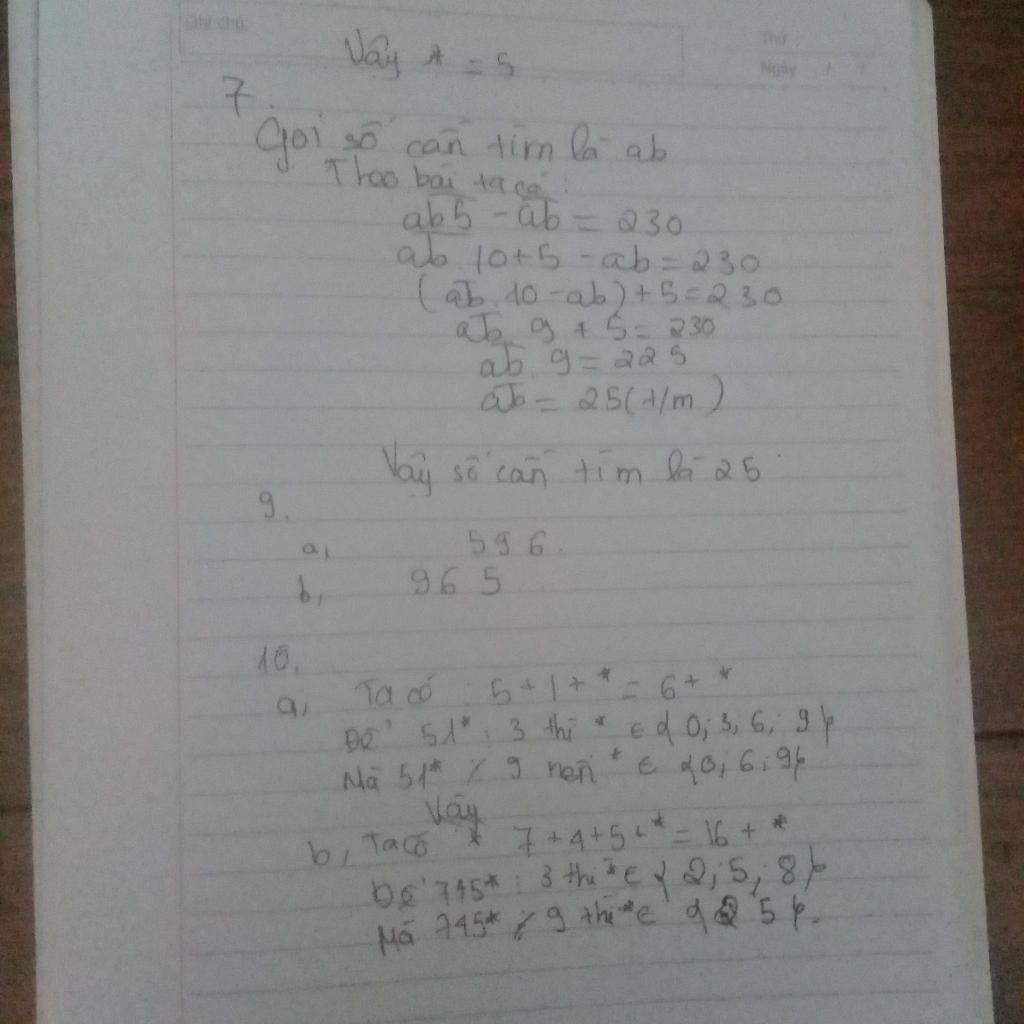 Ghi chú
Thứ
Ngày / /
Vậy * = 5
7.
Gọi số cần tìm là ab
Theo bài ta có:
ab5 - ab = 230
ab . 10 + 5 - ab = 230
(ab . 10 - ab) + 5 = 230
ab . 9 + 5 = 230
ab . 9 = 225
ab = 25 (t/m)
Vậy số cần tìm là 25
9.
a, 596.
b, 965
10.
a, Ta có : 5 + 1 + * = 6 + *
Để 51* ⋮ 3 thì * ∈ {0; 3; 6; 9}
Mà 51* ⋮̸ 9 nên * ∈ {0; 6; 9}
Vậy
b, Ta có * 7 + 4 + 5 + * = 16 + *
Để 745* ⋮ 3 thì * ∈ {2; 5; 8}
Mà 745* ⋮̸ 9 thì * ∈ { 5 }.